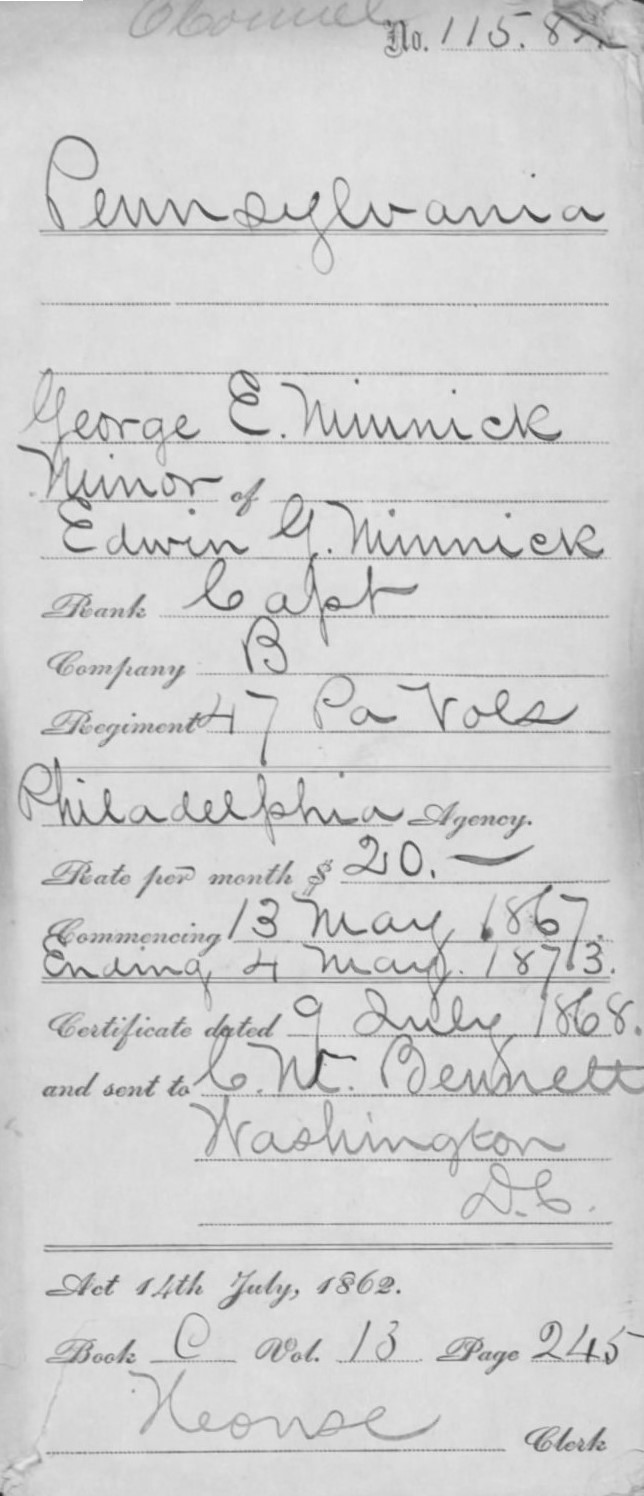 No. 115.8
Pennsylvania
George E. Minnick
Minor of
Edwin G. Minnick
Rank Capt
Company B
Regiment 47 Pa Vols
Philadelphia Agency.
Rate per month $ 20. —
Commencing 13 May 1867.
Ending 4 May. 1873.
Certificate dated 9 July 1868.
and sent to C. M. Bennett
Washington
D.C.
Act 14th July, 1862.
Book C Vol. 13 Page 245
Clerk